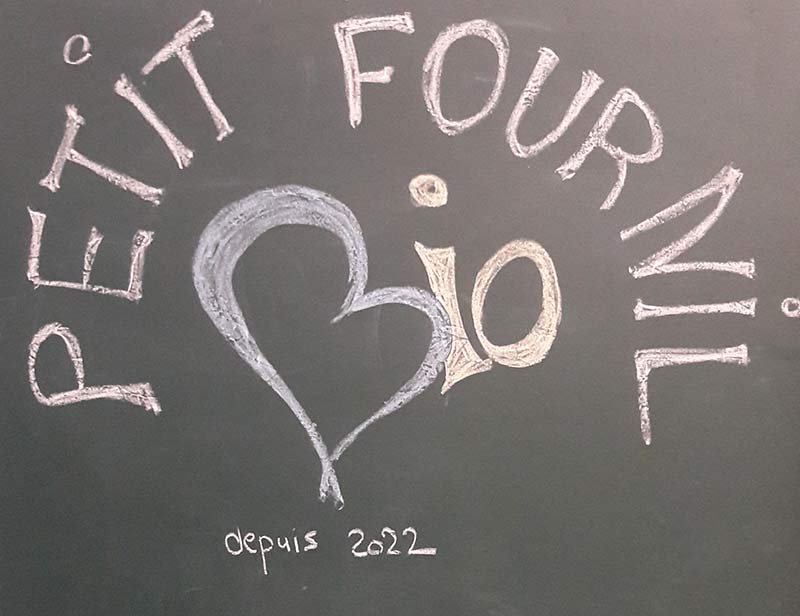 PETIT FOURNIL
Bio
depuis 2022